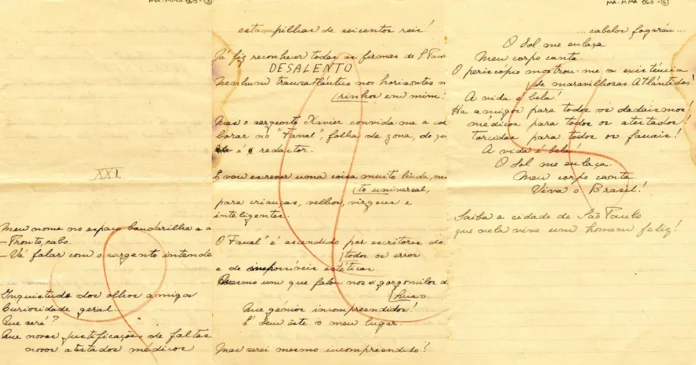 XXI
Meu nome no espaço bandarilha o a
— Pronto, cabo.
— Vá falar com o sargento intende
Inquietude dos olhos amigos
Curiosidade geral
Que será?
Que novas justificações de faltas
novos atestados médicos
estampilhas de seicentos reis!
Já fiz reconhecer todas as firmas de S. Paul
DESALENTO
Nenhum transatlântico nos horizontes m
rinhos em mim!
Mas o sargento Xavier convida-me a
borar no "Fanal", folha da zona, de
é redactor.
E vou escrever uma coisa muito linda, mu
to universal,
para crianças, velhos, virgens e
inteligentes.
O Fanal é ascendido por escritores de
todos os
e de impossíveis estéticas
um que falou nos gorgomilos d
Que gênios incompreendidos!
É Seu este o meu lugar
Mas serei mesmo incompreendido?
...cabelos fogaréu...
O Sol me enlaça
Meu corpo canta
O periscopio mostrou-me a existência
de maravilhosas Atlântidas!
A vida é bela!
Ha amigos para todos os dadaismos!
médicos para todos os atestados!
torcidas para todos os fanais!
A vida é bela!
O Sol me enlaça
Meu corpo canta
Viva o Brasil!
Saiba a cidade de São Paulo
que nela vive um homem feliz!